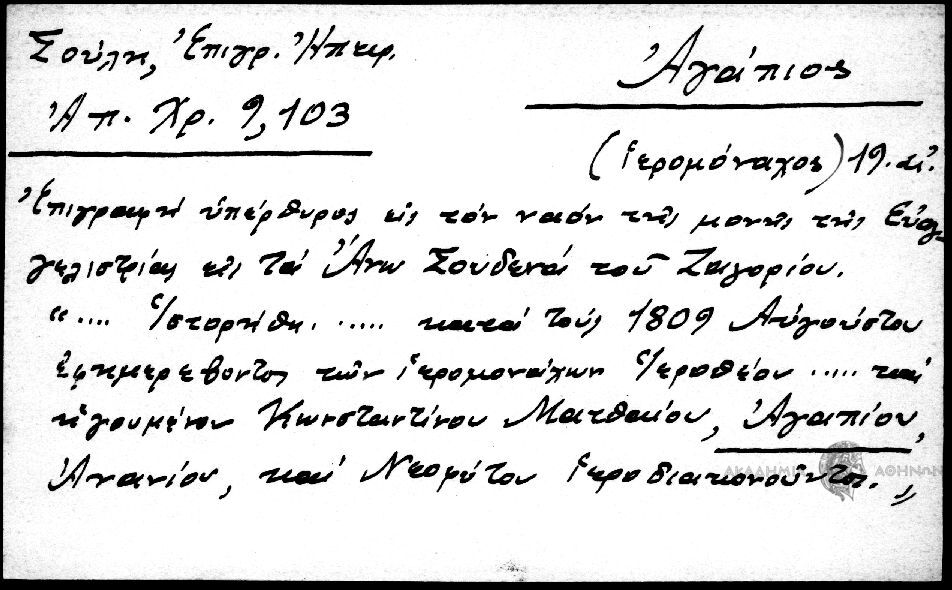 Σούλη, Ἐπιγρ. Ἠπειρ.
Ἀπ. Χρ. 9, 103
Ἀγάπιος
(ἱερομόναχος) 19. αἰ.
Ἐπιγραφή ὑπέρθυρος εἰς τόν ναόν τῆς μονῆς τῆς Εὐαγ-
γελιστρίας εἰς τά Ἄνω Σουδενά τοῦ Ζαγορίου.
".... Ἱστορήθη ..... κατά τούς 1809 Αὐγούστου
ἐφημερεβοντος τῶν ἱερομονάχων Ἱεροθέου ..... καί
ἡγουμένου Κωνσταντίνου Ματθαίου, Ἀγαπίου,
Ἀνανίου, καί Νεοφύτου ἱεροδιακονοῦντος."
ΑΚΑΔΗΜΙΑ ΑΘΗΝΩΝ